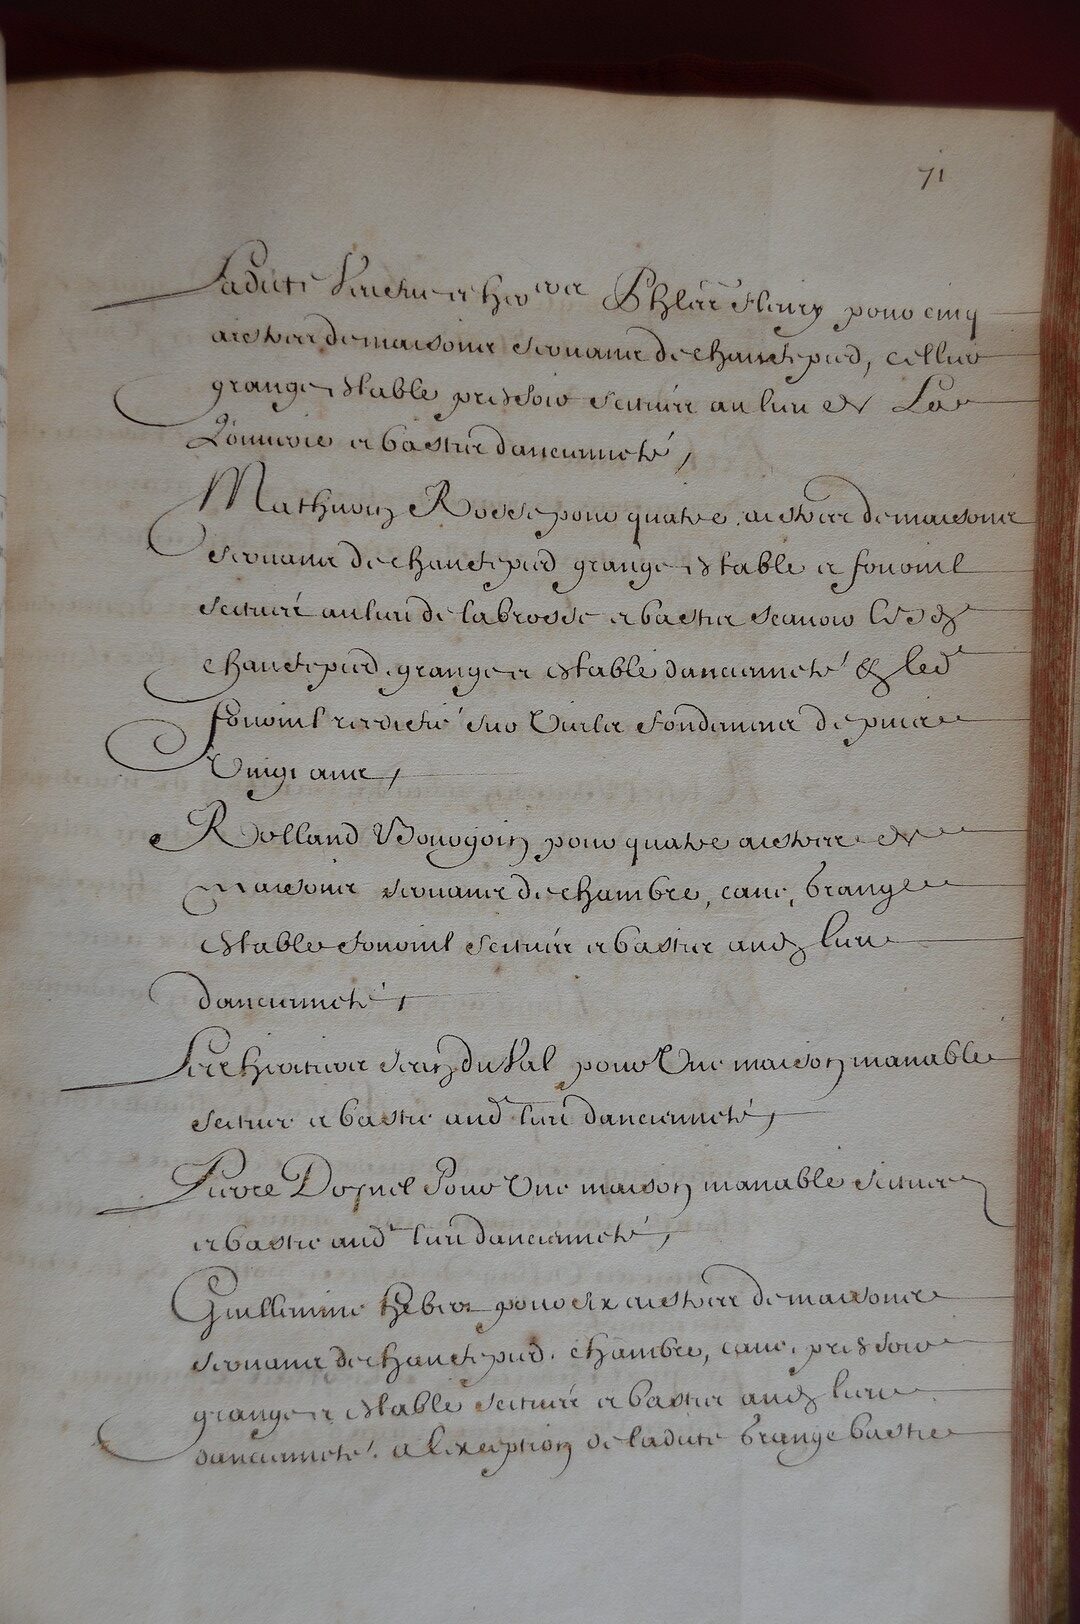 71
Ladicte Veufve et her Fleury pour cinq
aistres de maisons servans de chauctepied, cellier
grange estable pressoir scituez au lieu de La
et bastis dancienneté,
Mathurin Rosse pour quatre aistres de maisons
servans de chauctepied grange estable et fournil
scituez au lieu de la brosse et bastis scavoir lesd
chauctepied grange et estable dancienneté & led
fournil reediffié sur vieles fondemens depuis
Vingt ans,
Rolland Bourgoin pour quatre aistres de
maisons servans de chambre, cave, Grange
Estable fournil scituez et bastis aud lieu
dancienneté,
Les heritiers Jean du Val pour Une maison manable
scituee et bastie aud lieu dancienneté,
Pierre Pour Une maison manable scituee
et bastie aud lieu dancienneté,
Guillemine Hebert pour six aistres de maisons
servans de chauctepied, chambre, cave, pressoir
grange et estable scituez et bastis aud lieu
dancienneté, a lexception de ladicte Grange bastie